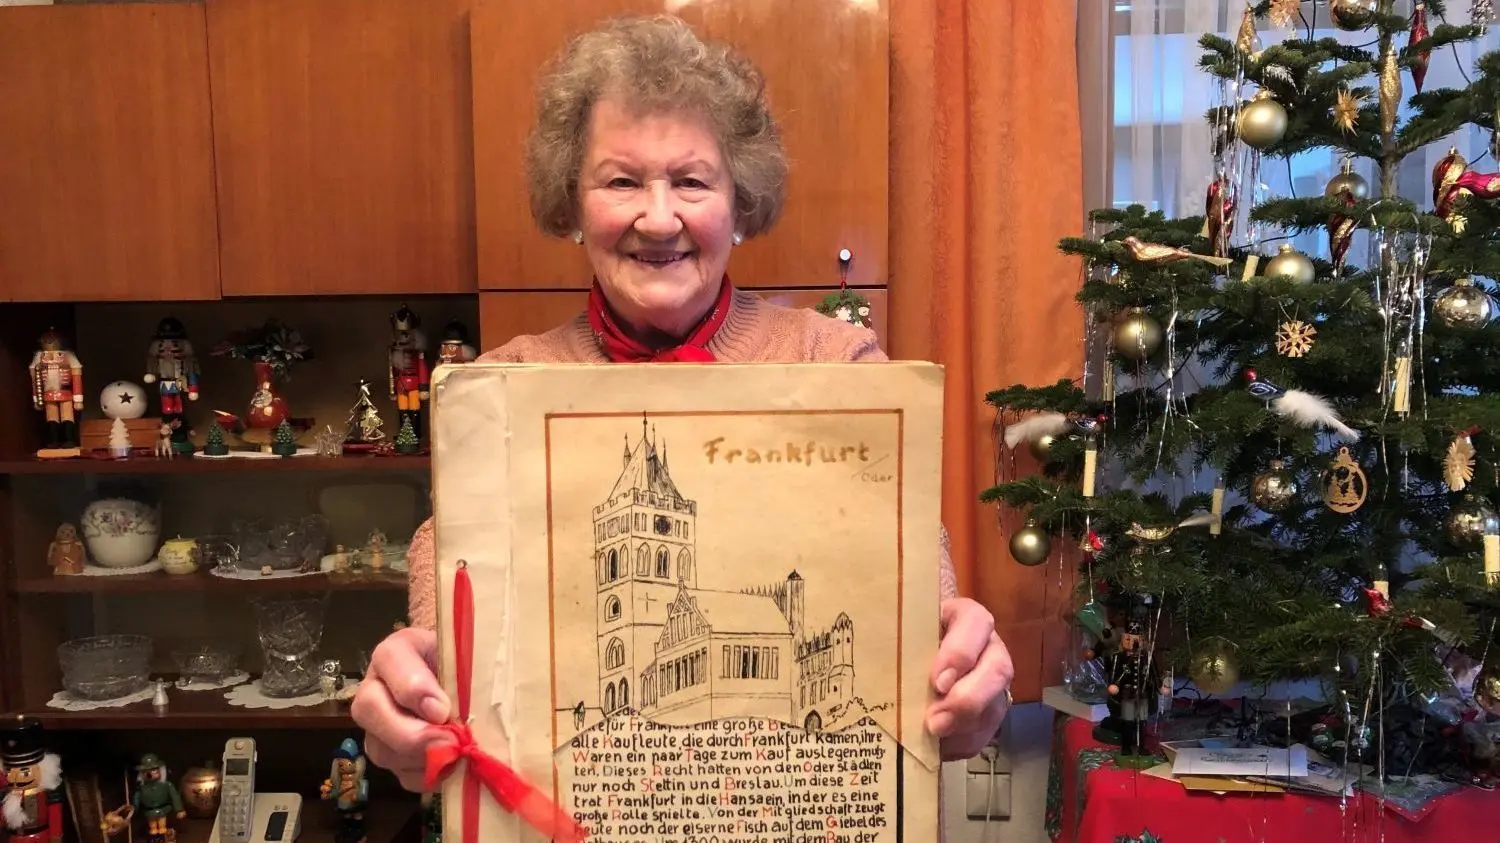 Frankfurt
Oder
für Frankfurt eine große
alle Kaufleute, die durch Frankfurt kamen, ihre
Waren ein paar Tage zum Kauf auslegen muß-
ten. Dieses Recht hatten von den Oderstädten
nur noch Stettin und Breslau. Um diese Zeit
trat Frankfurt in die Hansa ein, in der es eine
große Rolle spielte. Von der Mitgliedschaft zeugt
heute noch der eiserne Fisch auf dem Giebel des
Um 1300 wurde mit dem Bau der